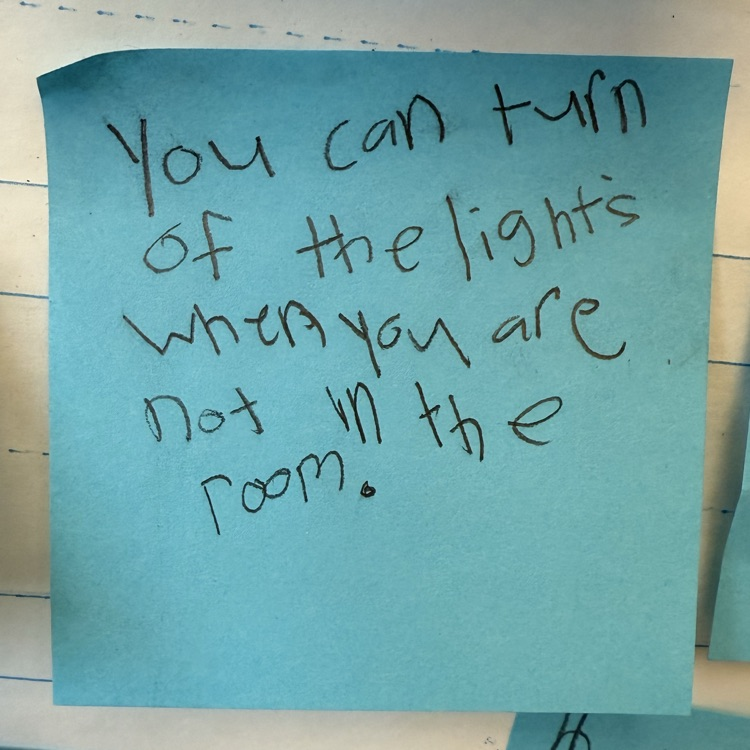 You can turn
of the light's
when you are
not in the
room.